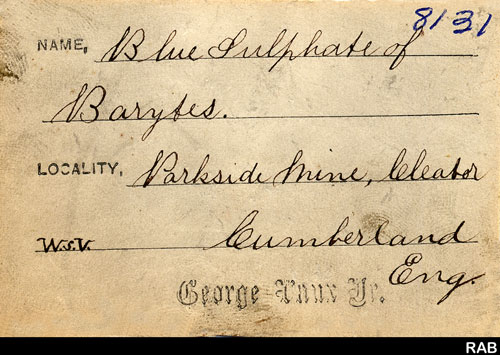 8131
NAME, Blue Sulphate of
Barytes.
LOCALITY, Parkside Mine, Cleator
W.S.V. Cumberland
Eng.
George Vaux Jr.
RAB